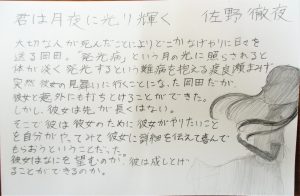 君は月夜に光り輝く 佐野徹夜
大切な人が死んだことによりどこかなげやりに日々を
送る岡田。「発光病」という月の光に照らされると
体が淡く発光するという難病を抱える渡良瀬まみず
突然彼女の見舞いに行くことになった岡田だが
彼女と意外にも打ちとけることができた。
しかし、彼女は先が長くはない。
そこで彼は彼女のために彼女がやりたいこと
を自分がやってみて彼女に詳細を伝えて喜んで
もらおうということだった。
彼女はなにを望むのか。彼は成しとげ
ることができるのか。